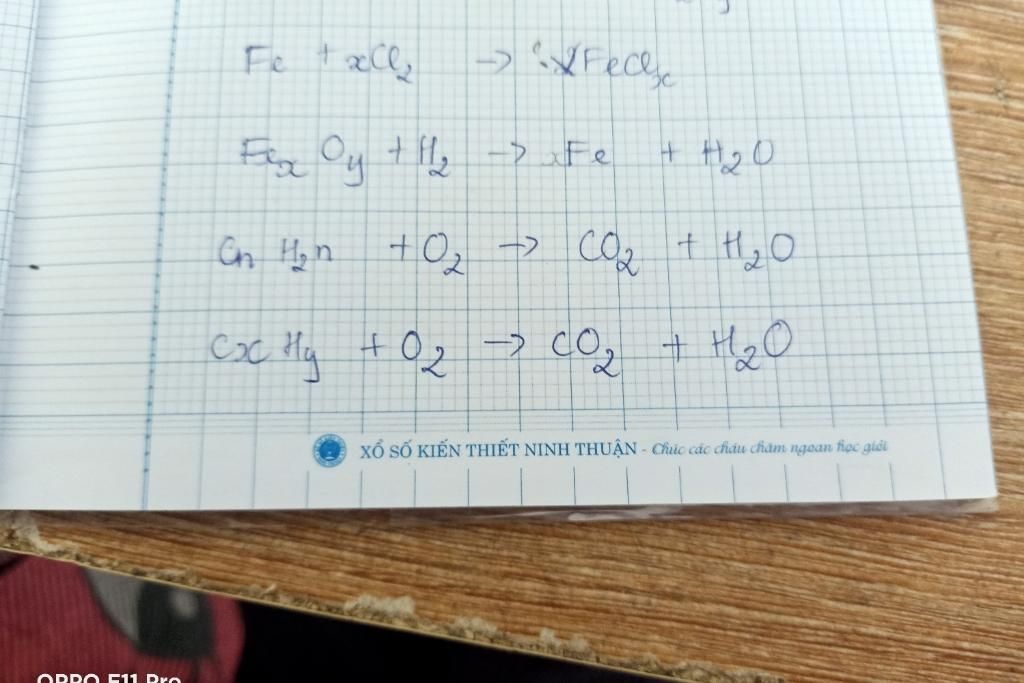 Fe + xCl2 → 2FeClx
FexOy + H2 → xFe + H2O
CnH2n + O2 → CO2 + H2O
CxHy + O2 → CO2 + H2O
XỔ SỐ KIẾN THIẾT NINH THUẬN - Chúc các cháu chăm ngoan học giỏi
OPPO F11 Pro